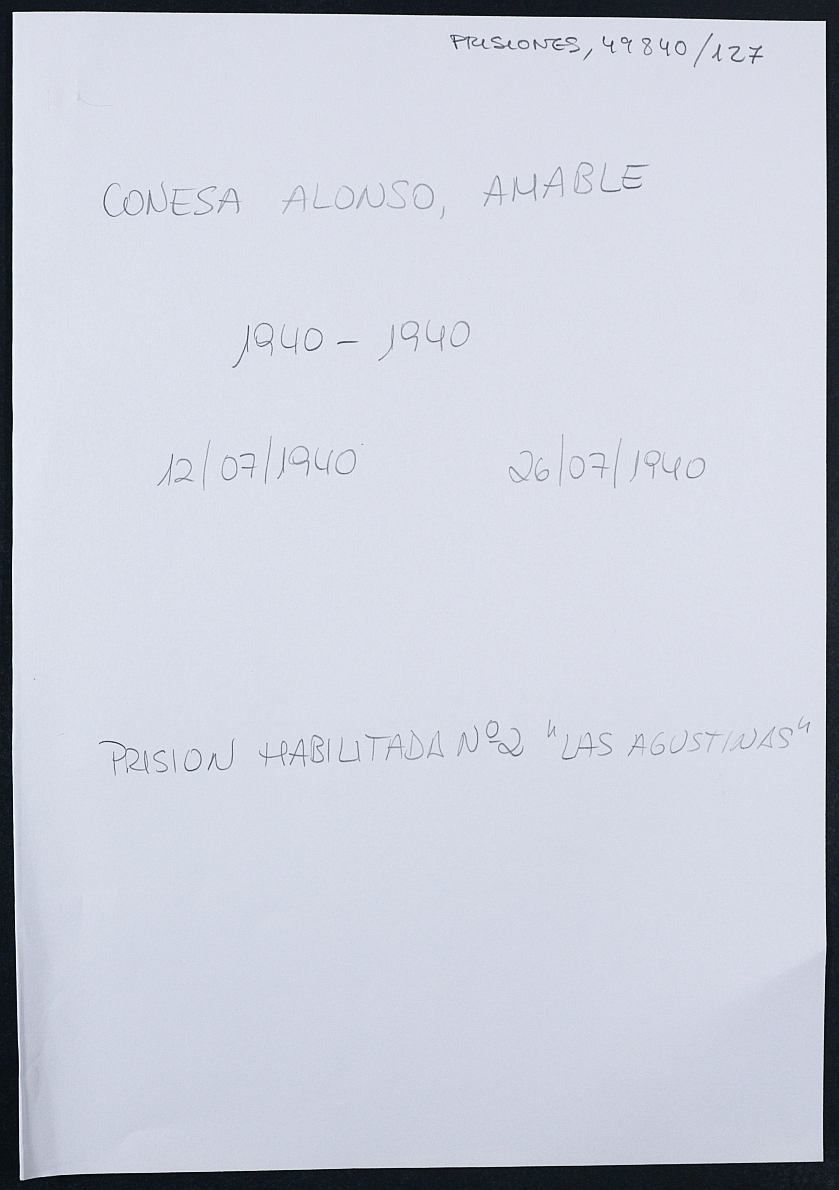 PRISIONES, 49840/127
CONESA ALONSO, AMABLE
1940 - 1940
12/07/1940 26/07/1940
PRISION HABILITADA Nº2 "LAS AGUSTINAS"